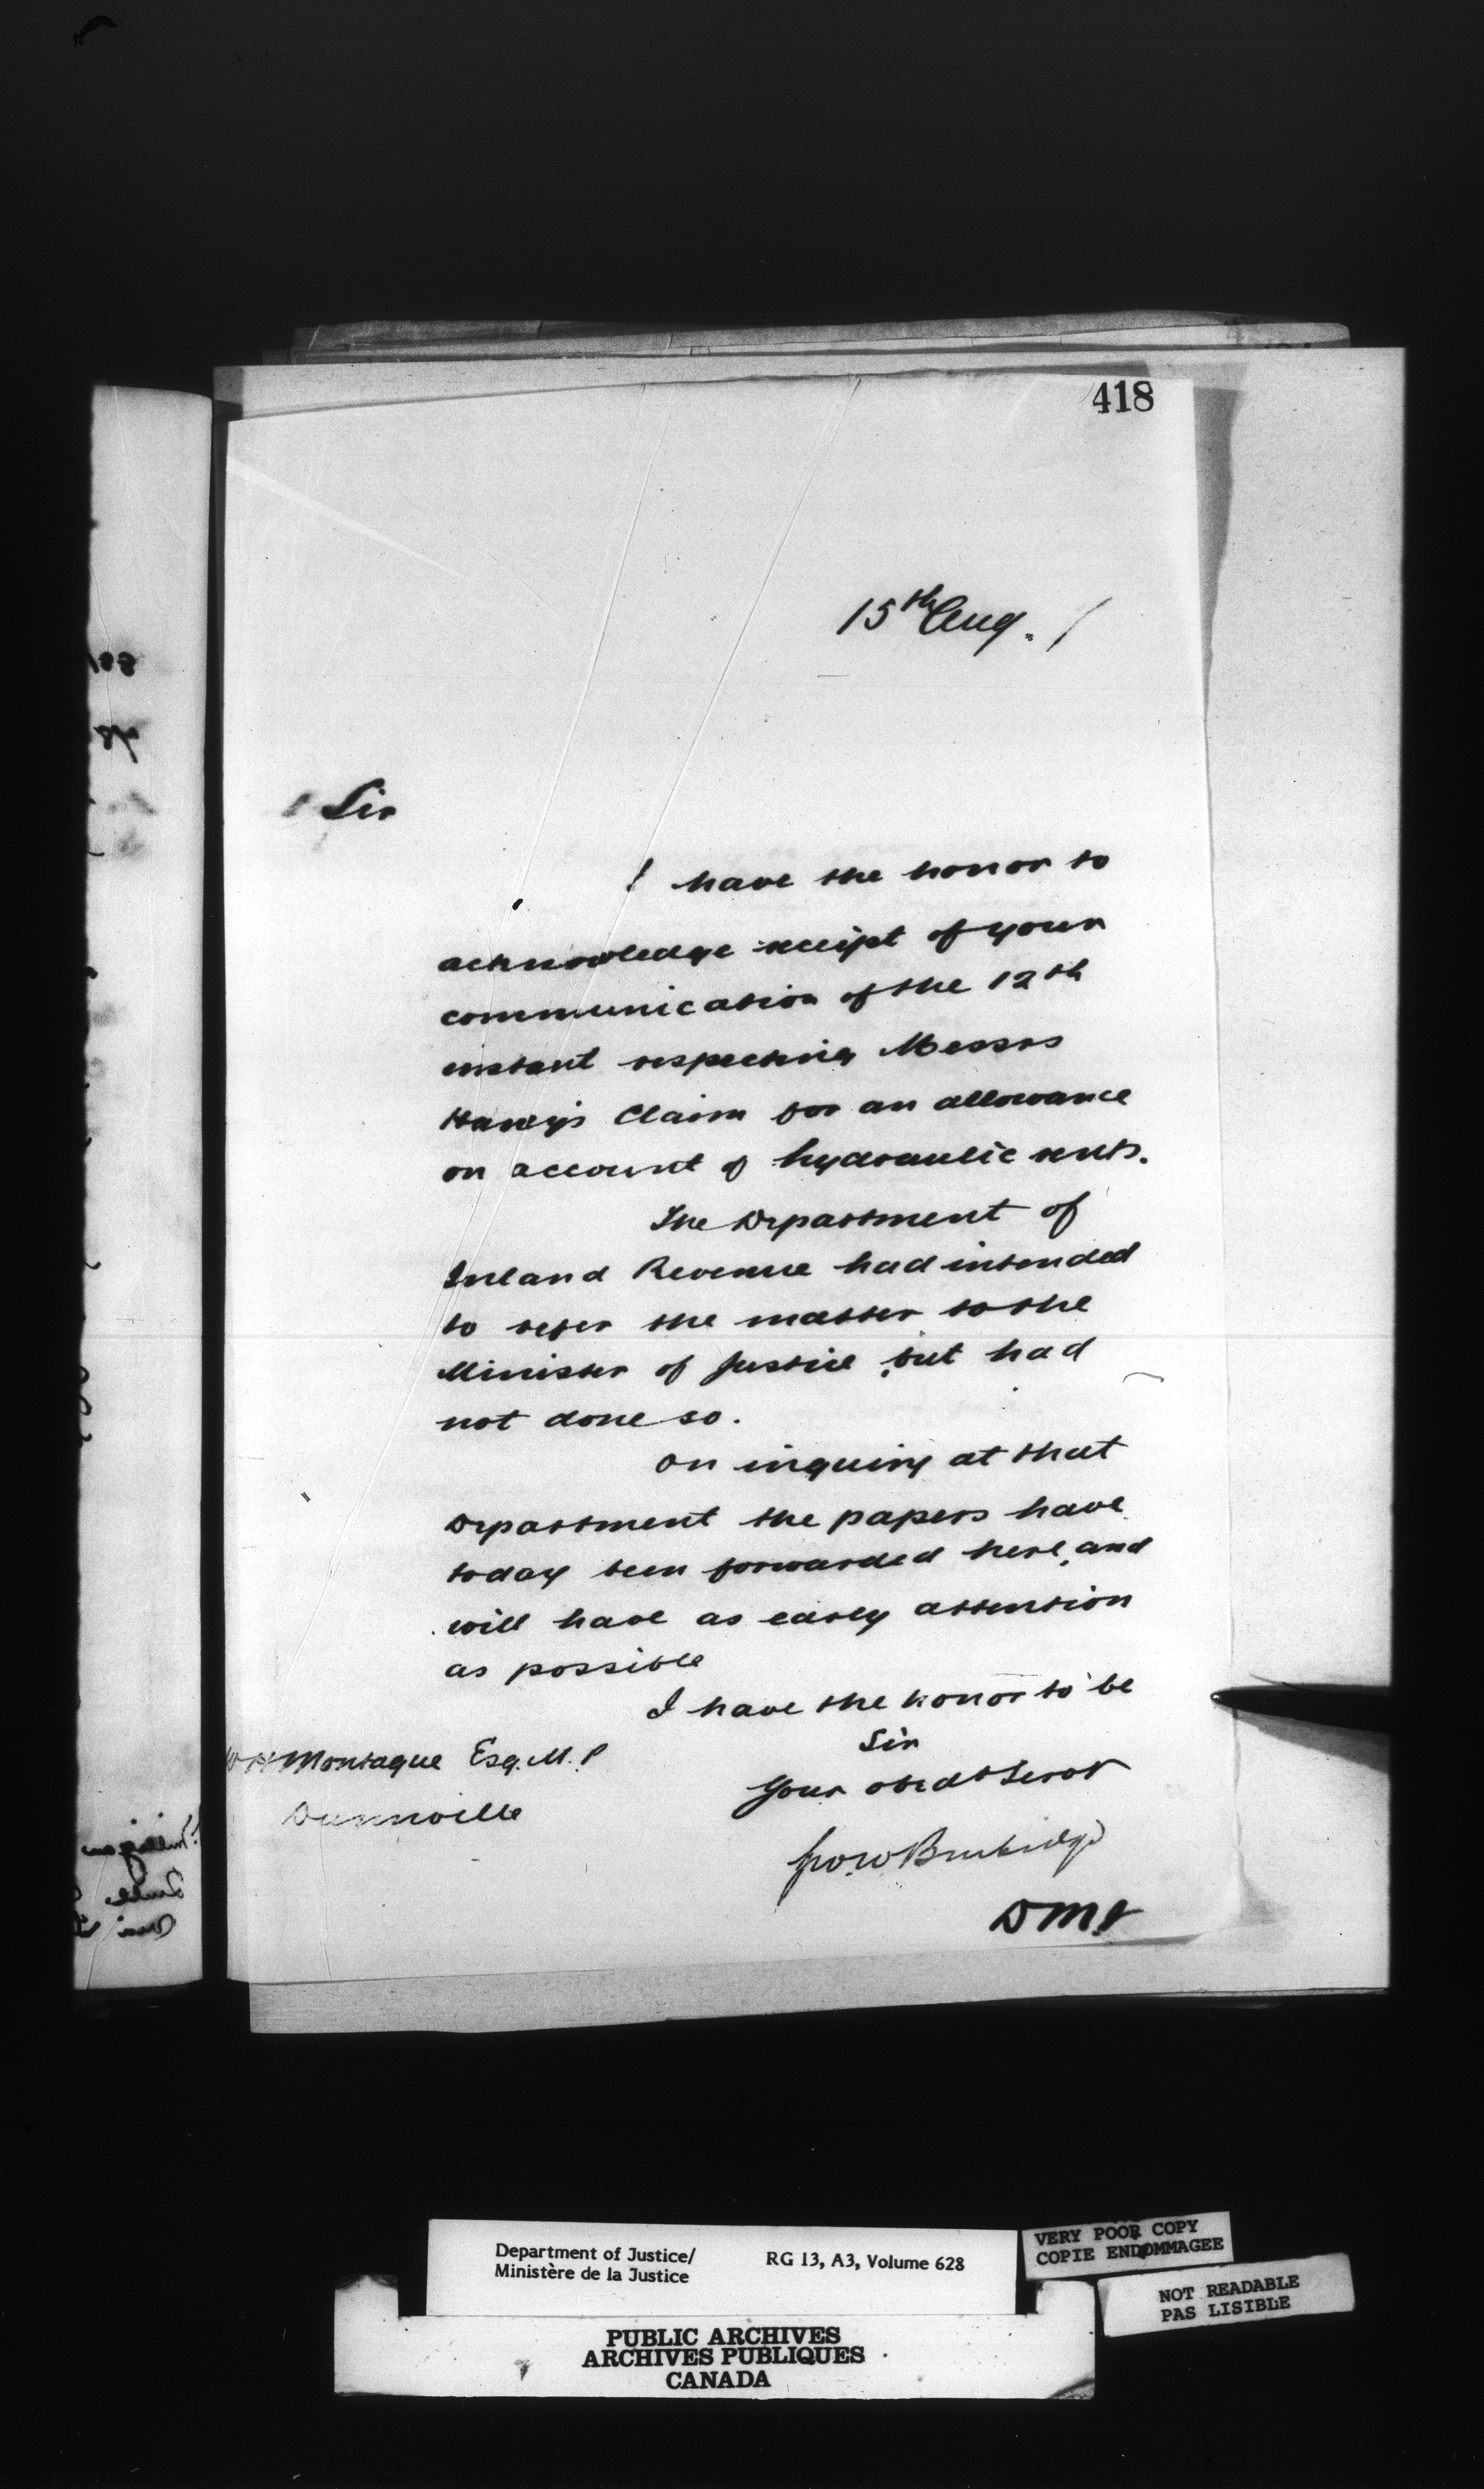 418
15th Aug. /
Sir
I have the honor to
acknowledge receipt of your
communication of the 12th
instant respecting Messrs
Claim for an allowance
on account of hydraulic rents.
The Department of
Inland Revenue had intended
to refer the matter to the
Minister of Justice, but had
not done so.
On inquiry at that
Department the papers have
today been forwarded here, and
will have as early attention
as possible
I have the honor to be
Sir
Your obedt Servt
W H Montague Esq. M.P
Dunnville
Geo. W Burbidge
D M J
Department of Justice/
Ministère de la Justice
RG 13, A3, Volume 628
VERY POOR COPY
COPIE ENDOMMAGEE
NOT READABLE
PAS LISIBLE
PUBLIC ARCHIVES
ARCHIVES PUBLIQUES
CANADA